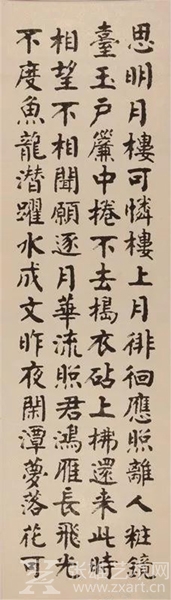 思明月樓可憐樓上月徘徊應照離人粧鏡
臺玉戶簾中捲不去擣衣砧上拂還來此時
相望不相聞願逐月華流照君鴻雁長飛光
不度魚龍潛躍水成文昨夜閑潭夢落花可
www.zxart.cn